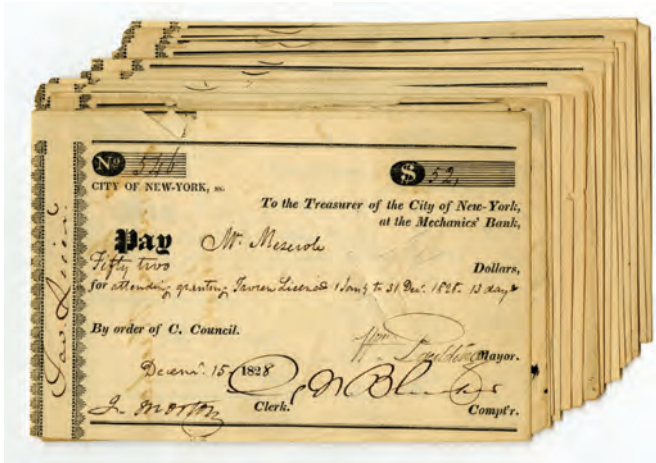 No 546
$ 52,
CITY OF NEW-YORK, ss.
To the Treasurer of the City of New-York,
at the Mechanics' Bank,
Pay Mr. Meserole
Fifty two Dollars,
for attending granting Tavern Licenses 1 Jany to 31 Decr. 1828. 13 days
By order of C. Council.
Wm Paulding Mayor.
Decem. 15 1828
J. Morton Clerk. Compt'r.